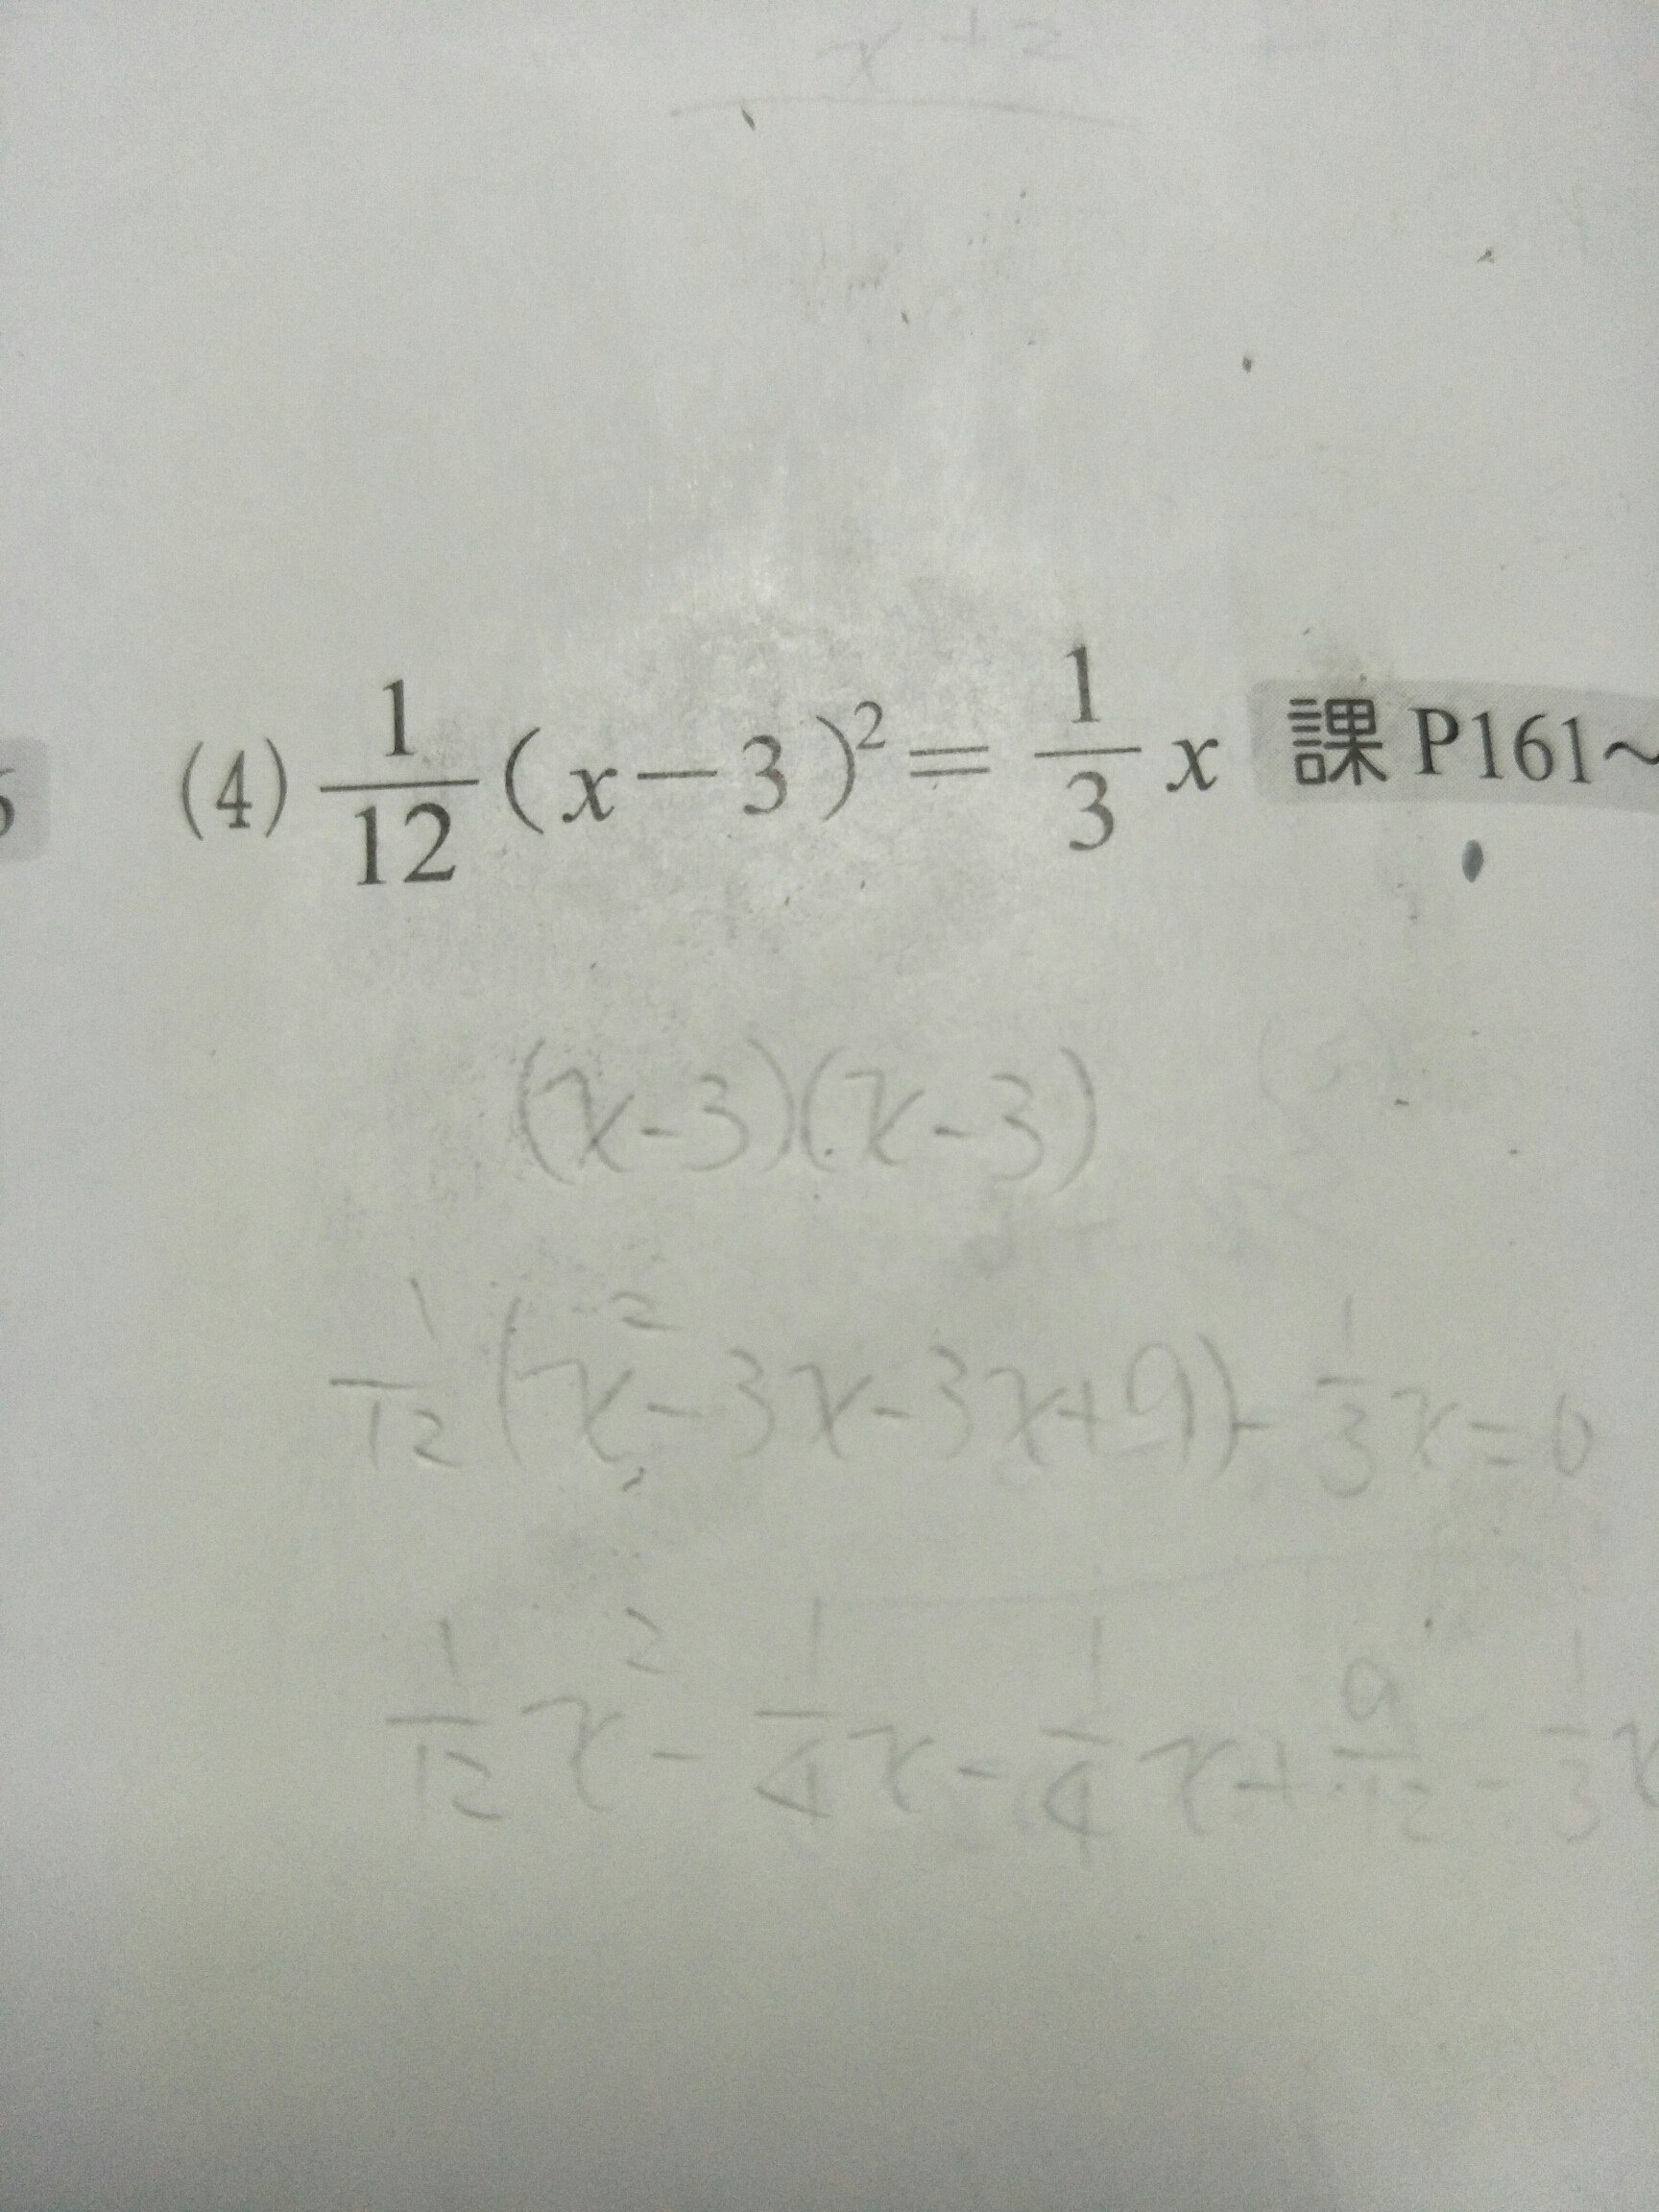 x + 2
(4) 1/12 (x－3)² = 1/3 x 課 P161~
(x-3)(x-3)
1/12 (x²-3x-3x+9) - 1/3 x = 0
1/12 x² - 1/4 x - 1/4 x + 9/12 - 1/3 x